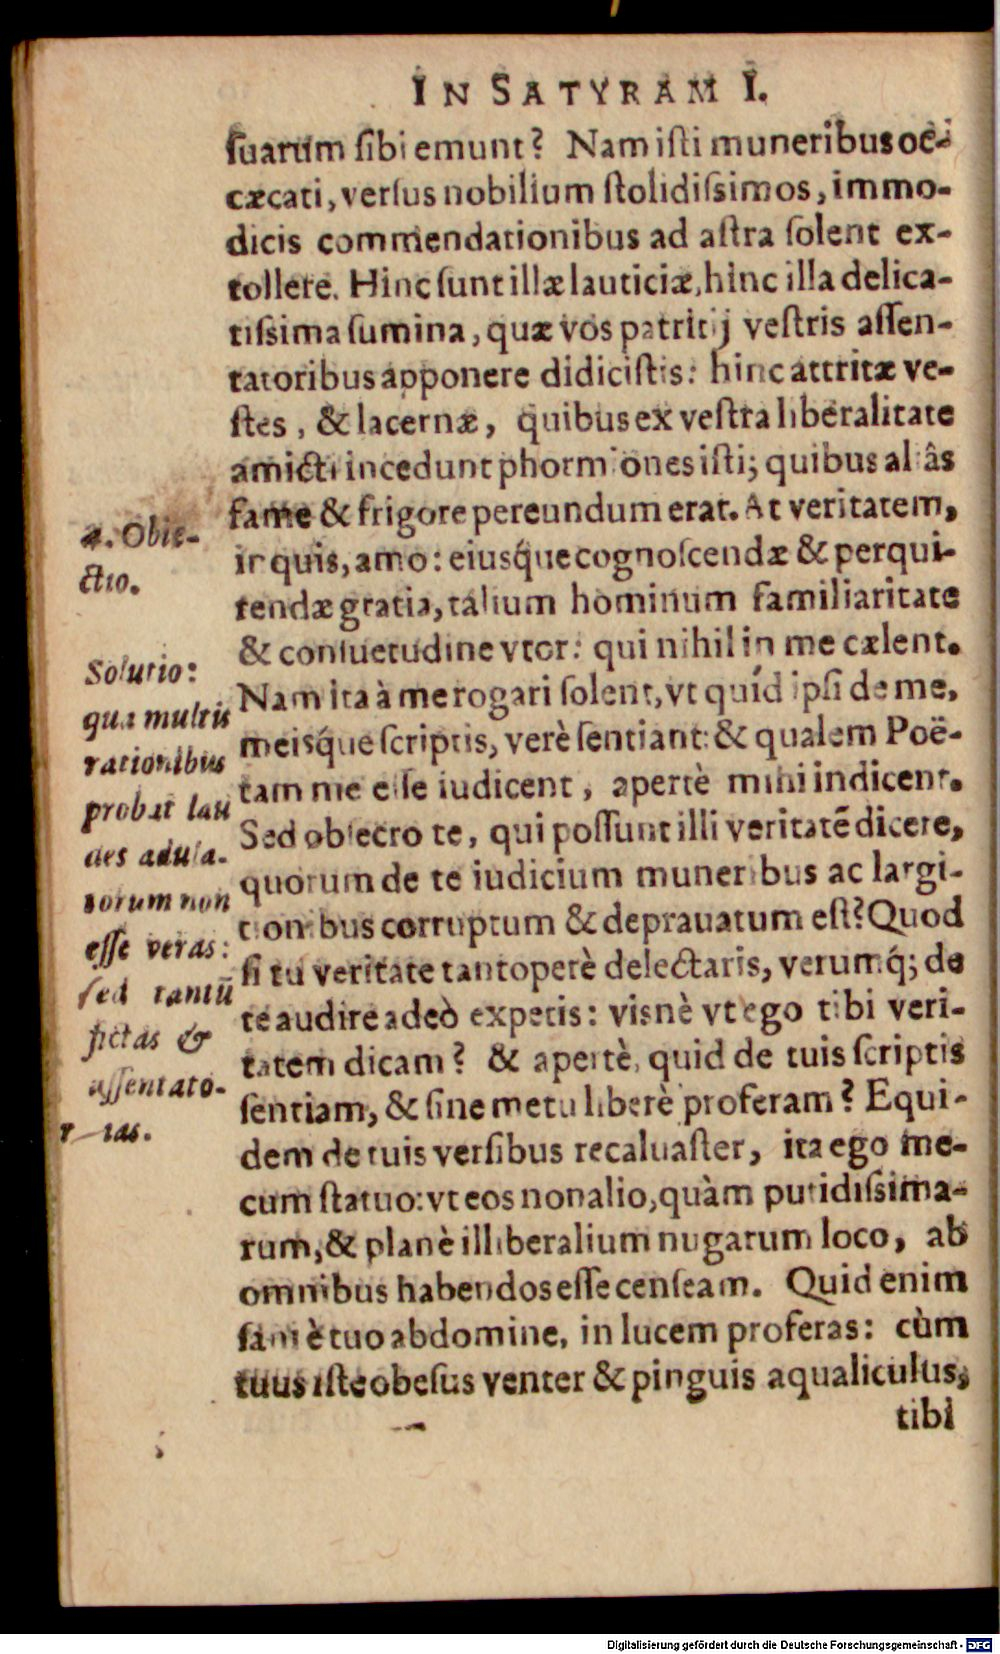 IN SATYRAM I.
suarum sibi emunt? Nam isti muneribus oc-
cæcati, versus nobilium stolidissimos, immo-
dicis commendationibus ad astra solent ex-
tollere. Hinc sunt illæ lauticiæ, hinc illa delica-
tissima sumina, quæ vos patritij vestris assen-
tatoribus apponere didicistis: hinc attritæ ve-
stes, & lacernæ, quibus ex vestra liberalitate
amicti incedunt phormiones isti; quibus aliâs
fame & frigore pereundum erat. At veritatem,
inquis, amo: eiusq́ue cognoscendæ & perqui-
rendæ gratia, talium hominum familiaritate
& consuetudine vtor: qui nihil in me cælent.
Nam ita à me rogari solent, vt quid ipsi de me,
meisq́ue scriptis, verè sentiant: & qualem Poë-
tam me esse iudicent, apertè mihi indicent.
Sed obsecro te, qui possunt illi veritatē dicere,
quorum de te iudicium muneribus ac largi-
tionibus corruptum & deprauatum est? Quod
si tu veritate tantoperè delectaris, verumq́; de
te audire adeò expetis: visnè vt ego tibi veri-
tatem dicam? & apertè, quid de tuis scriptis
sentiam, & sine metu liberè proferam? Equi-
dem de tuis versibus recaluaster, ita ego me-
cum statuo: vt eos non alio, quàm putidissima-
rum, & planè illiberalium nugarum loco, ab
omnibus habendos esse censeam. Quid enim
sani è tuo abdomine, in lucem proferas: cùm
tuus iste obesus venter & pinguis aqualiculus,
tibi
4. Obie-
ctio.
Solutio:
qua multis
rationibus
probat lau
des adula-
torum non
esse veras:
sed tantū
fictas &
assentato-
r ias.
Digitalisierung gefördert durch die Deutsche Forschungsgemeinschaft - DFG